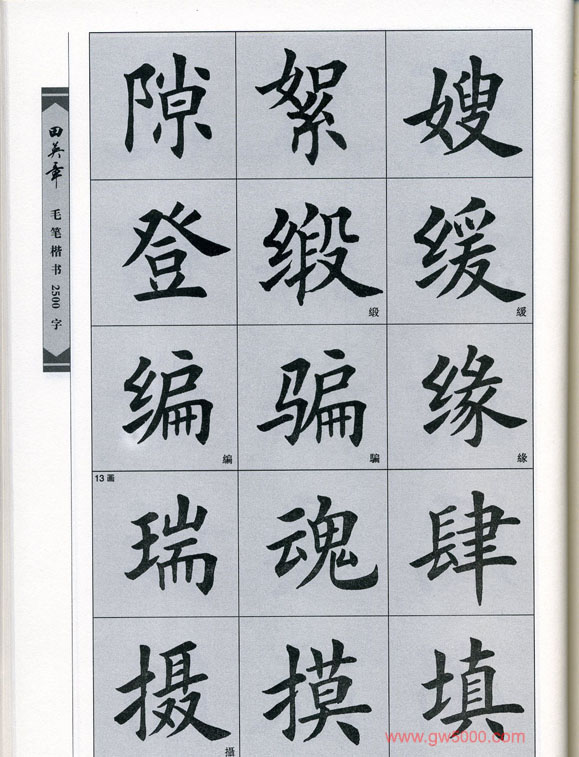 田英章
毛笔楷书2500字
隙 絮 嫂
登 缎 缓
緞 緩
编 骗 缘
編 騙 緣
13画
瑞 魂 肆
摄 摸 填
攝
www.gw5000.com